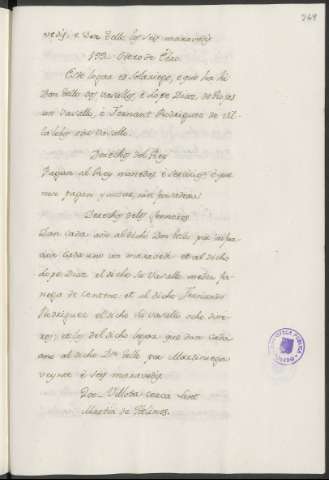 269
vedis, e Don Tello los seis maravedis
199. Otero de
Este logar es solariego, e que ha hi
Don Tello dos vasallos, e Lope Diaz, de Rojas
un vasallo, e Fernant Rodriguez de Vi
lalobos otro vasallo.
Derechos del Rey
Pagan al Rey monedas e servicios, e que
non pagan yantar, nin fonsadera.
Derechos de los Sennores
Dan cada año al dicho Don Tello por infur
cion cada uno un maravedi et al dicho
Lope Diaz el dicho su Vasallo media fa-
nega de centeno et al dicho Fernando
Rodriguez el dicho su vasallo ocho dine-
ros; et los del dicho logar que dan cada
año al dicho Dn. Tello por Martiniega
veynte e seis maravedis.
200. Villota cerca Sant
Martin de